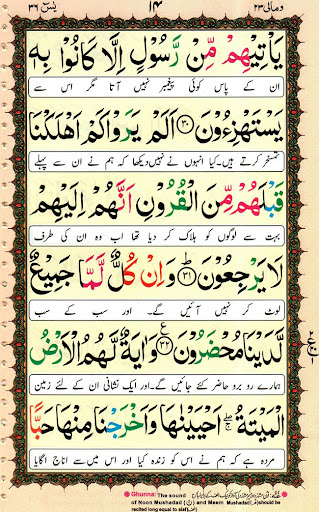 یٰسٓ ۳۶ ۱۴ ومالی ۲۳
يَاْتِيْهِمْ مِّنْ رَّسُوْلٍ اِلَّا كَانُوْا بِهٖ
ان کے پاس کوئی پیغمبر نہیں آتا مگر اس سے
يَسْتَهْزِءُوْنَ ۝۳۰ اَلَمْ يَرَوْا كَمْ اَهْلَكْنَا
تمسخر کرتے ہیں۔ کیا انہوں نے نہیں دیکھا کہ ہم نے ان سے پہلے
قَبْلَهُمْ مِّنَ الْقُرُوْنِ اَنَّهُمْ اِلَيْهِمْ
بہت سے لوگوں کو ہلاک کر دیا تھا اب وہ ان کی طرف
لَا يَرْجِعُوْنَ ۝۳۱ؕ وَاِنْ كُلٌّ لَّمَّا جَمِيْعٌ
لوٹ کر نہیں آئیں گے۔ اور سب کے سب
لَّدَيْنَا مُحْضَرُوْنَ ۝۳۲ ع وَاٰيَةٌ لَّهُمُ الْاَرْضُ
ہمارے رو برو حاضر کئے جائیں گے۔ اور ایک نشانی ان کے لئے زمین
الْمَيْتَةُ ۖۚ اَحْيَيْنٰهَا وَاَخْرَجْنَا مِنْهَا حَبًّا
مردہ ہے کہ ہم نے اس کو زندہ کیا اور اس میں سے اناج اگایا
● Ghunna: The sound
of Noon Mushadad (نّ) and Meem Mushadad (مّ) should be
recited long equal to alaf(ا)